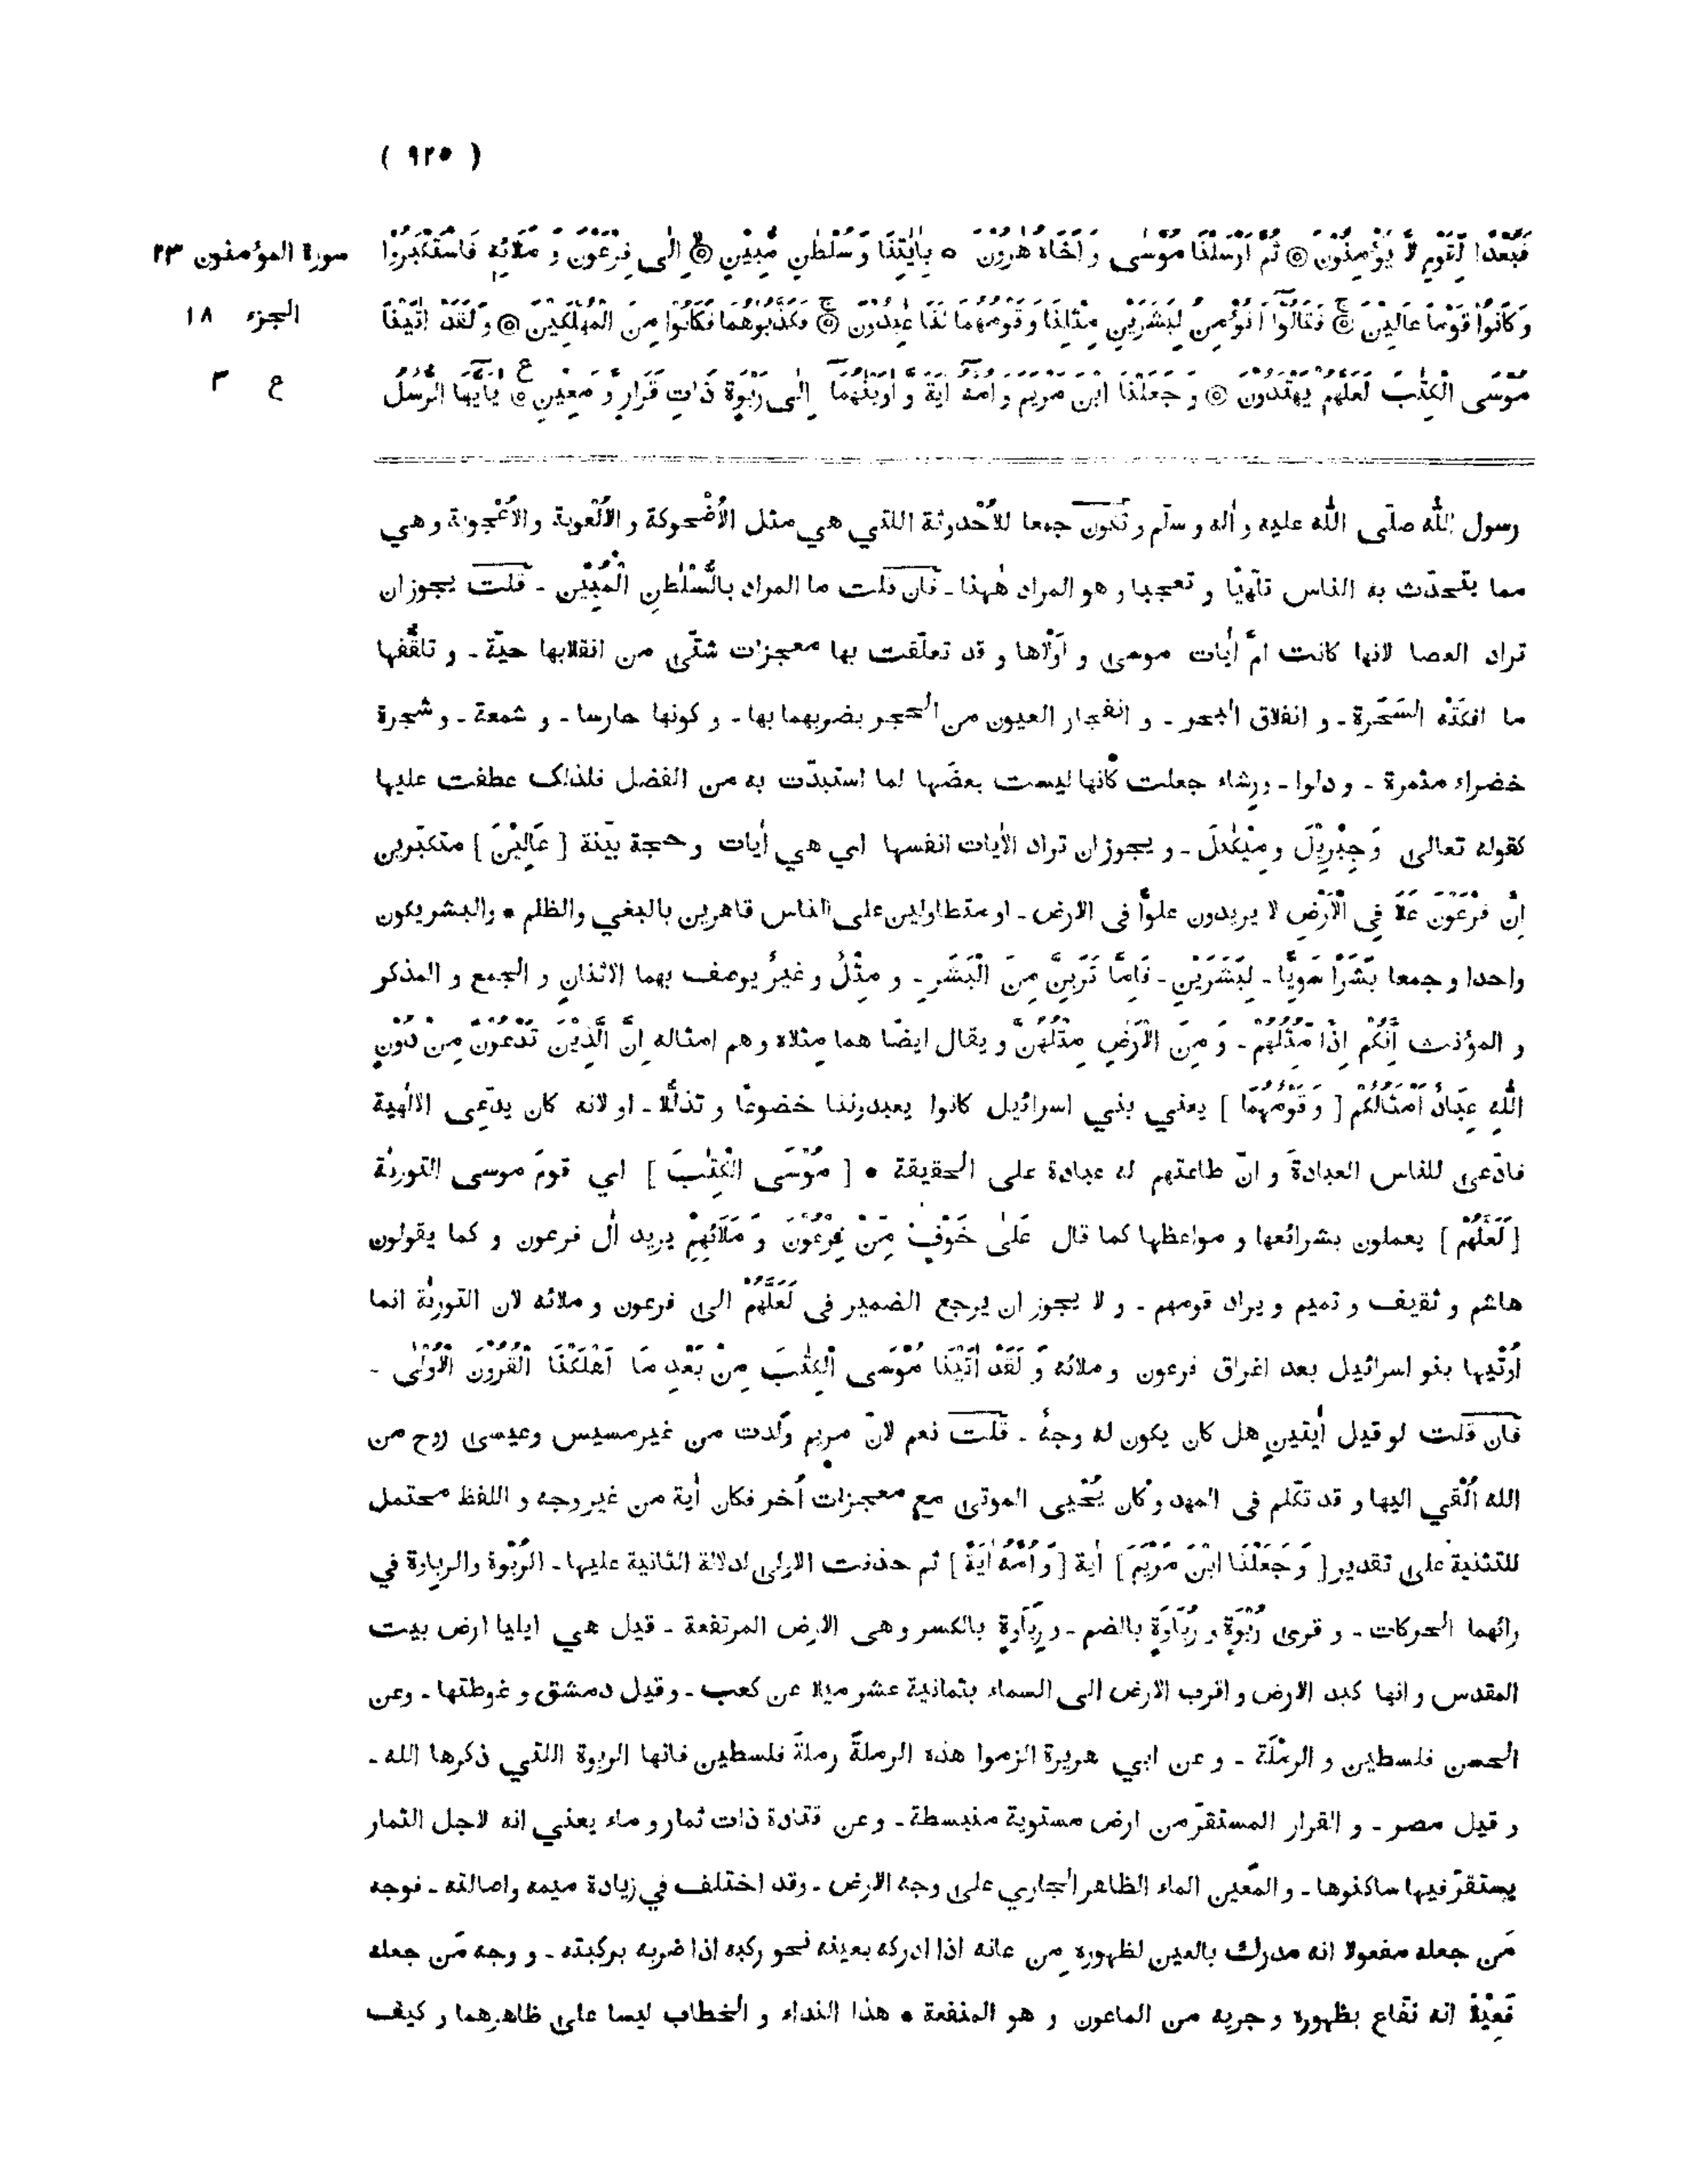 ( ٩٢٥ )
سورة المؤمنون ٢٣
الجزء ١٨
ع ٣
فَبُعْدًا لِّقَوْمٍ لَّا يُؤْمِنُوْنَ ۞ ثُمَّ اَرْسَلْنَا مُوْسٰى وَ اَخَاهُ هٰرُوْنَ ۰ بِاٰيٰتِنَا وَ سُلْطٰنٍ مُّبِيْنٍ ۞ اِلٰى فِرْعَوْنَ وَ مَلَائِهٖ فَاسْتَكْبَرُوْا
وَ كَانُوْا قَوْمًا عَالِيْنَ ۞ فَقَالُوْٓا اَنُؤْمِنُ لِبَشَرَيْنِ مِثْلِنَا وَ قَوْمُهُمَا لَنَا عٰبِدُوْنَ ۞ فَكَذَّبُوْهُمَا فَكَانُوْا مِنَ الْمُهْلَكِيْنَ ۞ وَ لَقَدْ اٰتَيْنَا
مُوْسَى الْكِتٰبَ لَعَلَّهُمْ يَهْتَدُوْنَ ۞ وَ جَعَلْنَا ابْنَ مَرْيَمَ وَ اُمَّهٗٓ اٰيَةً وَّ اٰوَيْنٰهُمَآ اِلٰى رَبْوَةٍ ذَاتِ قَرَارٍ وَّ مَعِيْنٍ ۞ ع يٰٓاَيُّهَا الرُّسُلُ
رسول الله صلّى الله عليه و اٰله و سلّم و تكون جمعا للاُحْدوثة اللتي هي مثل الاُضْحوكة و الاُلْعوبة والاُعْجوبة و هي
مما يتحدّث به الناس تلَهّيًا و تعجبا و هو المراد هٰهنا ـ فان قلت ما المراد بِالسُّلْطٰنِ الْمُبِيْنِ ـ قلت يجوز ان
تراد العصا لانها كانت اُمّ اٰيات موسى و اَوّلاها و قد تعلّقت بها معجزات شتّى من انقلابها حيّة ـ و تلقّفها
ما افكَتْه السَحَرة ـ و انفلاق البحر ـ و انفجار العيون من الحجر بضربهما بها ـ و كونها حارسا ـ و شمعة ـ و شجرة
خضراء مثمرة ـ و دلوا ـ ورِشاء جعلت كأنها ليست بعضَها لما استبدّت به من الفضل فلذلك عطفت عليها
كقوله تعالى وَ جِبْرِيْلَ و مِيْكٰىلَ ـ و يجوز ان تراد الاٰيات انفسها اي هي اٰيات و حجة بيّنة [ عَالِيْنَ ] متكبّرين
اِنَّ فِرْعَوْنَ عَلَا فِي الْاَرْضِ لا يريدون علوًّا فى الارض ـ او متطاولين على الناس قاهرين بالبغي والظلم • والبشر يكون
واحدا و جمعا بَشَرًا سَوِيًّا ـ لِبَشَرَيْنِ ـ فَاِمَّا تَرَيِنَّ مِنَ الْبَشَرِ ـ و مِثْلُ و غيرُ يوصف بهما الاثنانِ و الجمع و المذكر
و المؤنث اِنَّكُمْ اِذًا مِّثْلُهُمْ ـ وَ مِنَ الْاَرْضِ مِثْلَهُنَّ و يقال ايضًا هما مِثلاه و هم امثاله اِنَّ الَّذِيْنَ تَدْعُوْنَ مِنْ دُوْنِ
اللّٰهِ عِبَادٌ اَمْثَالُكُمْ [ وَ قَوْمُهُمَا ] يعني بني اسرائيل كانوا يعبدوننا خضوعًا و تذلُّلا ـ او لانه كان يدّعى الالٰهية
فادّعى للناس العبادةَ و انّ طاعتهم له عبادة على الحقيقة • [ مُوْسَى الْكِتٰبَ ] اي قومَ موسى التورٰىة
[ لَعَلَّهُمْ ] يعملون بشرائعها و مواعظها كما قال عَلٰى خَوْفٍ مِّنْ فِرْعَوْنَ وَ مَلَائِهِمْ يريد اٰل فرعون و كما يقولون
هاشم و ثقيف و تميم و يراد قومهم ـ و لا يجوز ان يرجع الضمير فى لَعَلَّهُمْ الى فرعون و ملائه لان التورٰىة انما
اُوتيها بنو اسرائيل بعد اغراق فرعون و ملائه وَ لَقَدْ اٰتَيْنَا مُوْسَى الْكِتٰبَ مِنْ بَعْدِ مَا اَهْلَكْنَا الْقُرُوْنَ الْاُوْلٰى ـ
فان قلت لو قيل اٰيتينِ هل كان يكون له وجهٌ ـ قلت نعم لانّ مريم ولَدت من غير مسيس وعيسى روح من
الله اُلْقي اليها و قد تكلّم فى المهد و كان يُحْيى الموتى مع معجزات اُخر فكان اٰية من غير وجه و اللفظ محتمل
للتثنية على تقدير [ وَ جَعَلْنَا ابْنَ مَرْيَمَ ] اٰية [ وَ اُمَّهٗ اٰيَةً ] ثم حذفت الاولى لدلالة الثانية عليها ـ الرَّبْوة والرباوة في
رائهما الحركات ـ و قرى رُبْوَةٍ و رُبَاوَةٍ بالضم ـ و رِبَاوةٍ بالكسر وهى الارض المرتفعة ـ قيل هي ايليا ارض بيت
المقدس و انها كبد الارض و اقرب الارض الى السماء بثمانية عشر ميلا عن كعب ـ و قيل دمشق و غوطتها ـ وعن
الحسن فلسطين و الرمْلَة ـ و عن ابي هريرة الزموا هذه الرملةَ رملةَ فلسطين فانها الربوة اللتي ذكرها الله ـ
و قيل مصر ـ و القرار المستقرّ من ارض مستوية منبسطة ـ و عن قتادة ذات ثمار و ماء يعني انه لاجل الثمار
يستقرّ فيها ساكنوها ـ و المَعين الماء الظاهر الجاري على وجه الارض ـ وقد اختلف في زيادة ميمه واصالته ـ فوجه
مَن جعله مفعولا انه مدرك بالعين لظهوره من عانه اذا ادركه بعينه نحو ركبه اذا ضربه بركبته ـ و وجه مَن جعله
فَعِيْلًا انه نفّاع بظهوره و جريه من الماعون و هو المنفعة • هذا النداء و الخطاب ليسا على ظاهرهما و كيف